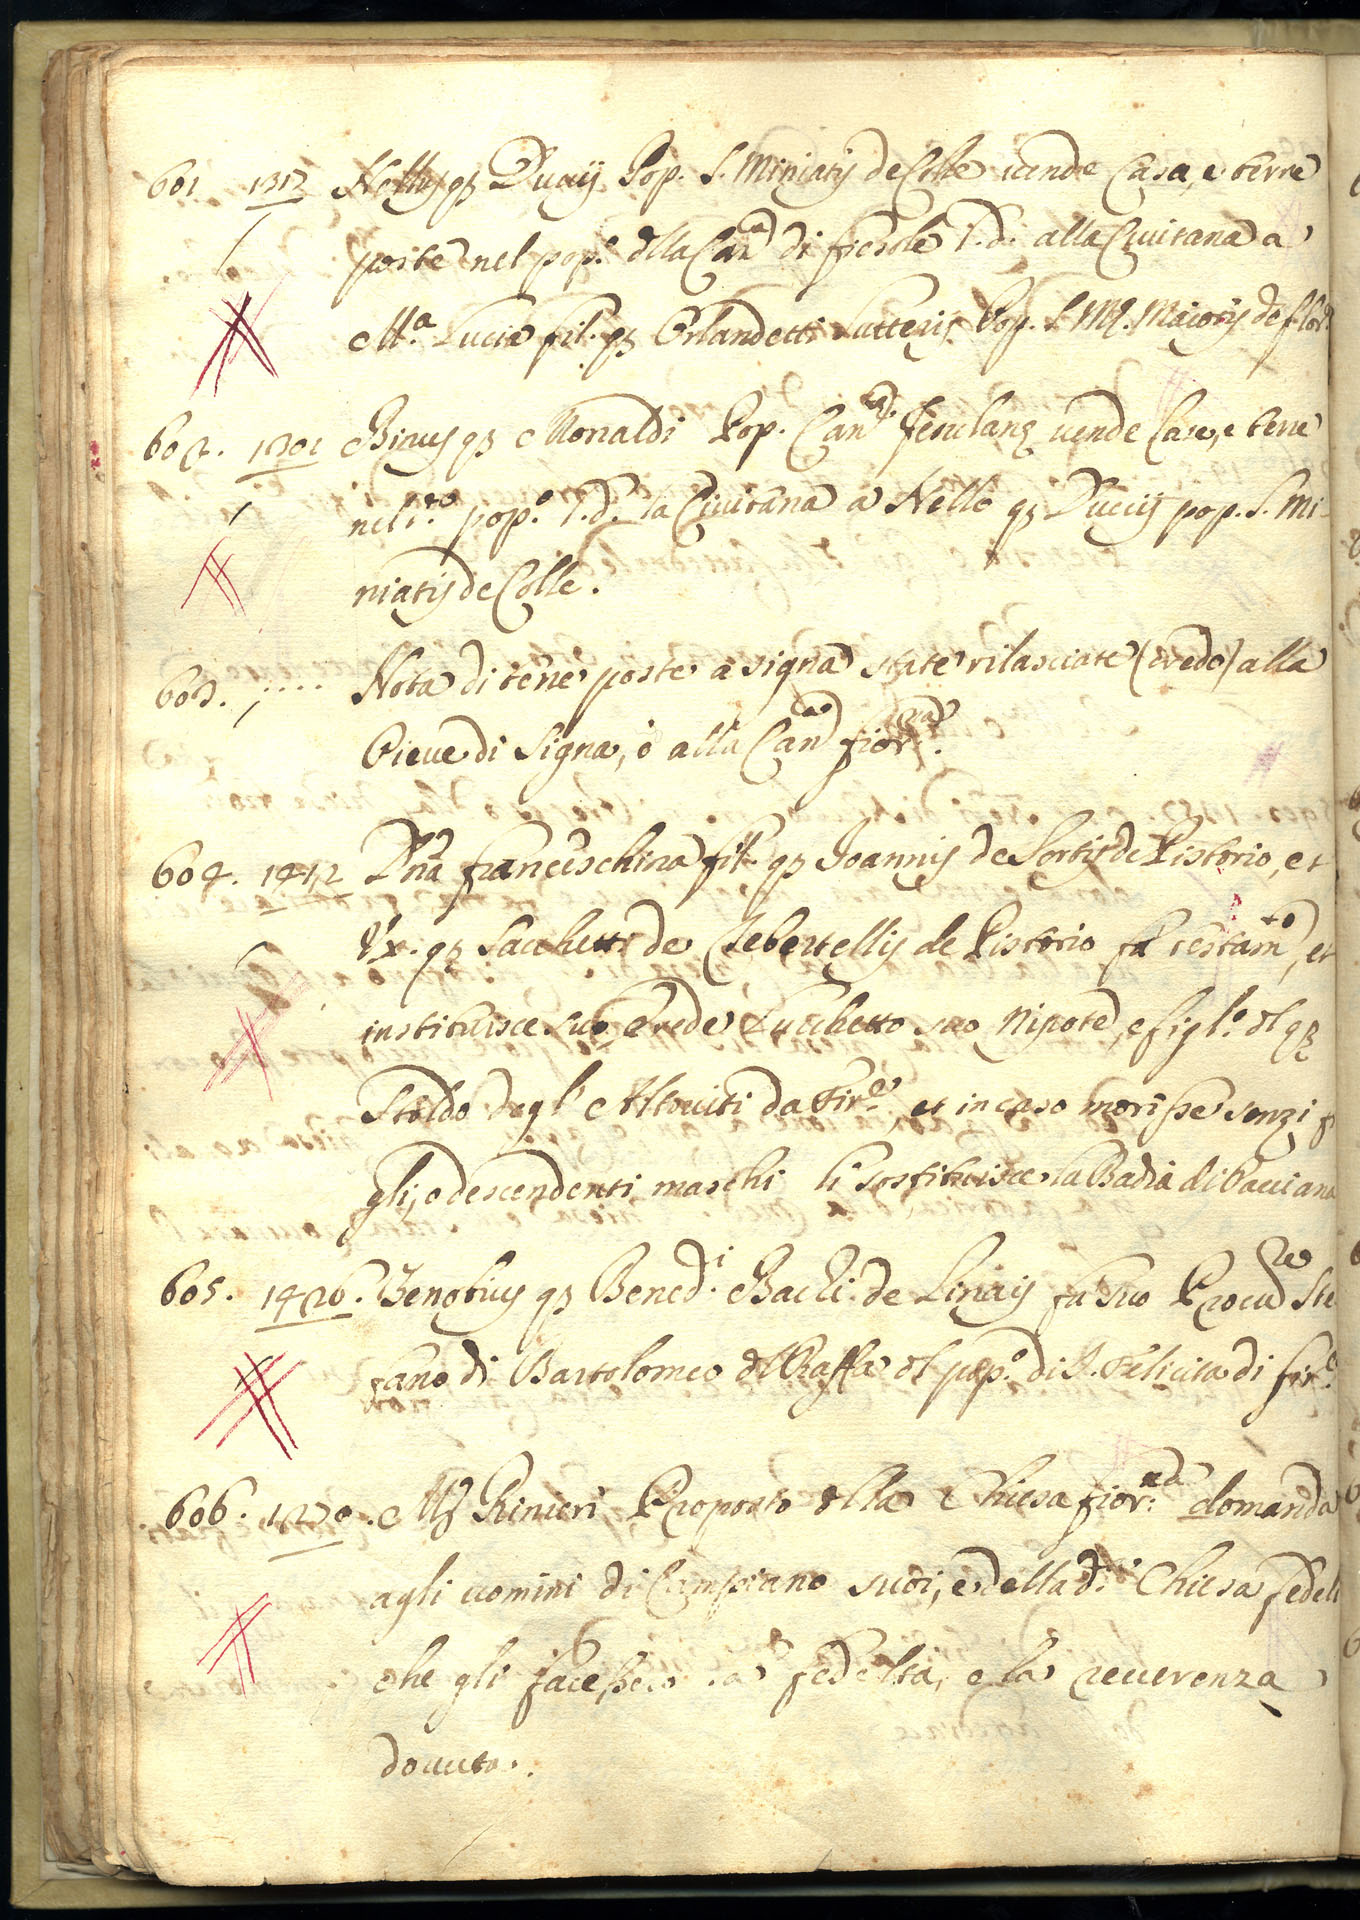 601. 1317 Nellus qz Duccij Pop. S. Miniatij de Colle uende Casa, e terre
poste nel pop.º dlla Can.ª di fiesole l.d. alla Ciuitana a
M.ª Lucia fil. qz Orlandetti Pop. S. M.ª Maioris de flor.ª
602. 1301 Binus qz Monaldi Pop. Can.ª fesulanę uende Case, e terre
nel s.º pop.º l.d. la Ciuitana a Nello qz Duccij pop. S. Mi-
niatij de Colle.
603. .... Nota di terre poste a signa state rilasciate (credo) alla
Pieue di Signa, ò alla Can.ª fior.na
604. 1412 Dna franceschina fil. qz Ioannis de Sortis de Pistorio, et
Vx. qz Sacchetti de Pistorio fà testam.to, et
instituisce suo Erede Lucchetto suo Nipote, e figl.º dl qz
Stoldo degl' Altouiti da Fir.e, et in caso morisse senzi fi
gli, e descendenti maschi li sostituisce la Badia di Pacciana
605. 1426. Zenobius qz Bened.i de fà suo Procu.re Ste
fano di Bartolomeo dl Raffa dl pop.º di S. Felicita di fir.e
606. 1270. M. Rinieri Proposto dlla Chiesa fior.na domanda
agli uomini di Campiano suoi, e della d.ª Chiesa fedeli
che gli facessero la fedelta, e la reuerenza
douuta.